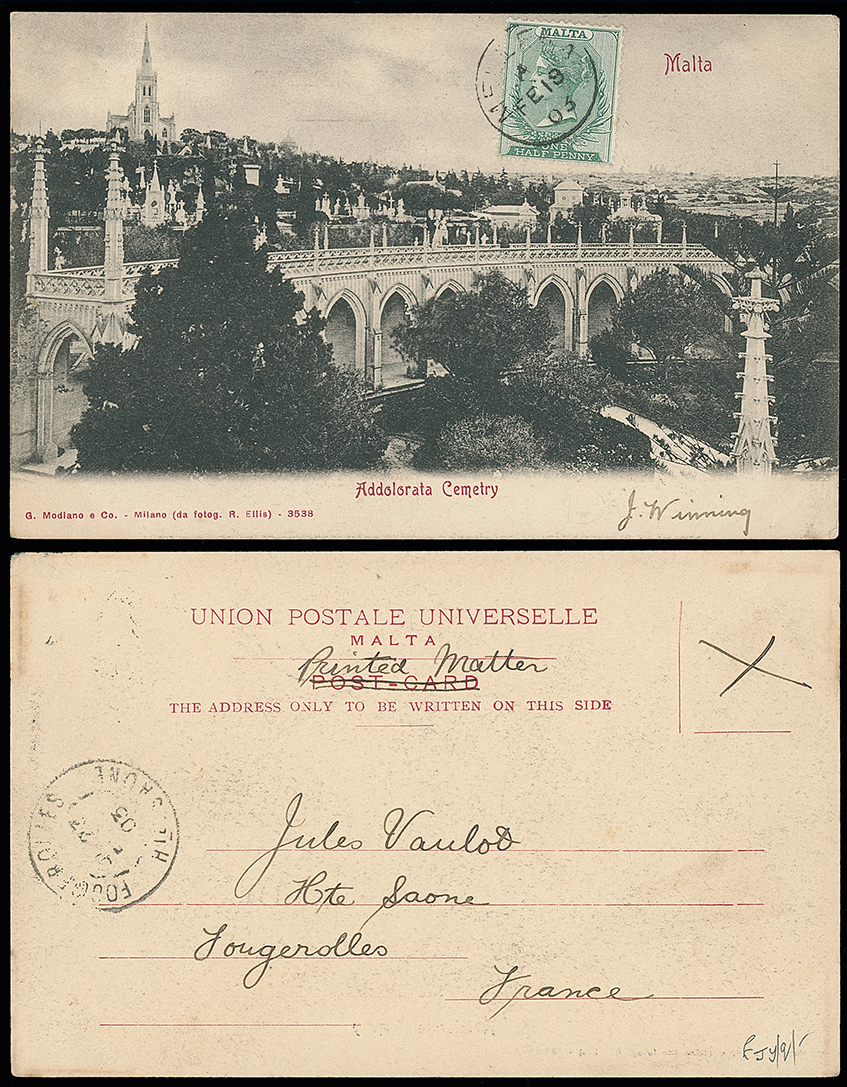 MALTA
ONE
HALF PENNY
A
FE 19
03
Malta
Addolorata Cemetry
G. Modiano e Co. - Milano (da fotog. R. Ellis) - 3538
J. Winning
UNION POSTALE UNIVERSELLE
MALTA
Printed Matter
POST-CARD
THE ADDRESS ONLY TO BE WRITTEN ON THIS SIDE
FOUGEROLLES
HTE SAONE
27
03
Jules Vaulot
Hte Saone
Fougerolles
France